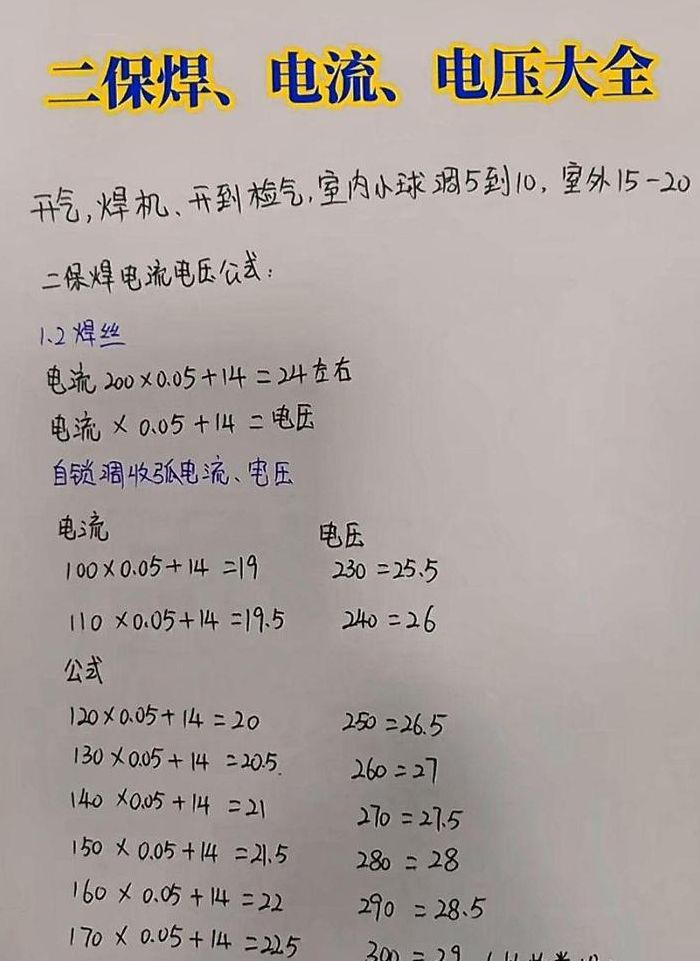 二保焊、电流、电压大全
开气,焊机、开到检气,室内小球调5到10,室外15-20
二保焊电流电压公式:
1.2焊丝
电流200×0.05+14=24左右
电流×0.05+14=电压
自锁调收弧电流、电压
电流 电压
100×0.05+14=19 230=25.5
110×0.05+14=19.5 240=26
公式
120×0.05+14=20 250=26.5
130×0.05+14=20.5 260=27
140×0.05+14=21 270=27.5
150×0.05+14=21.5 280=28
160×0.05+14=22 290=28.5
170×0.05+14=22.5 300=29